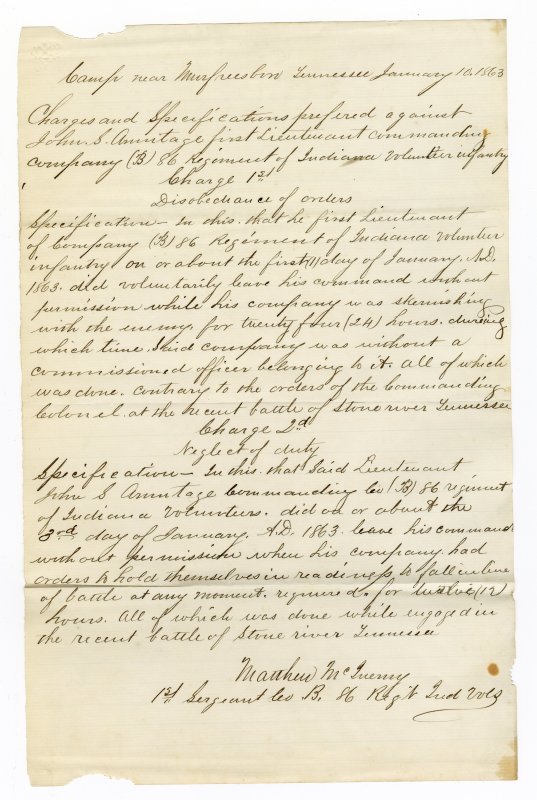 Camp near Murfreesboro Tennessee January 10. 1863
Charges and Specifications prefered against
John S. Armitage first Lieutenant commanding
company (B) 86 Regiment of Indiana Volunteer infantry
Charge 1st
Disobediance of orders
Specification – In this. that he first Lieutenant
of Company (B) 86 Regiment of Indiana Volunteer
infantry on or about the first (1) day of January. A.D.
1863. did voluntarily leave his command without
permission while his company was skirmishing
with the enemy. for twenty four (24) hours. during
which time said company was without a
commissioned officer belonging to it. all of which
was done. contrary to the orders of the Commanding
Colonel. at the recent battle of Stone river Tennessee
Charge 2d
Neglect of duty
Specification – In this. that Said Lieutenant
John S Armitage Commanding Co (B) 86 regiment
of Indiana Volunteers. did on or about the
3rd day of January. A.D. 1863. leave his command
without permission when his company. had
orders to hold themselves in readiness to fall in line
of battle at any moment. required. for twelve (12)
hours. All of which was done while engaged in
the recent battle of Stone river Tennessee
Matthew McInerny
1st Sergeant Co B. 86 Regt Ind Vols